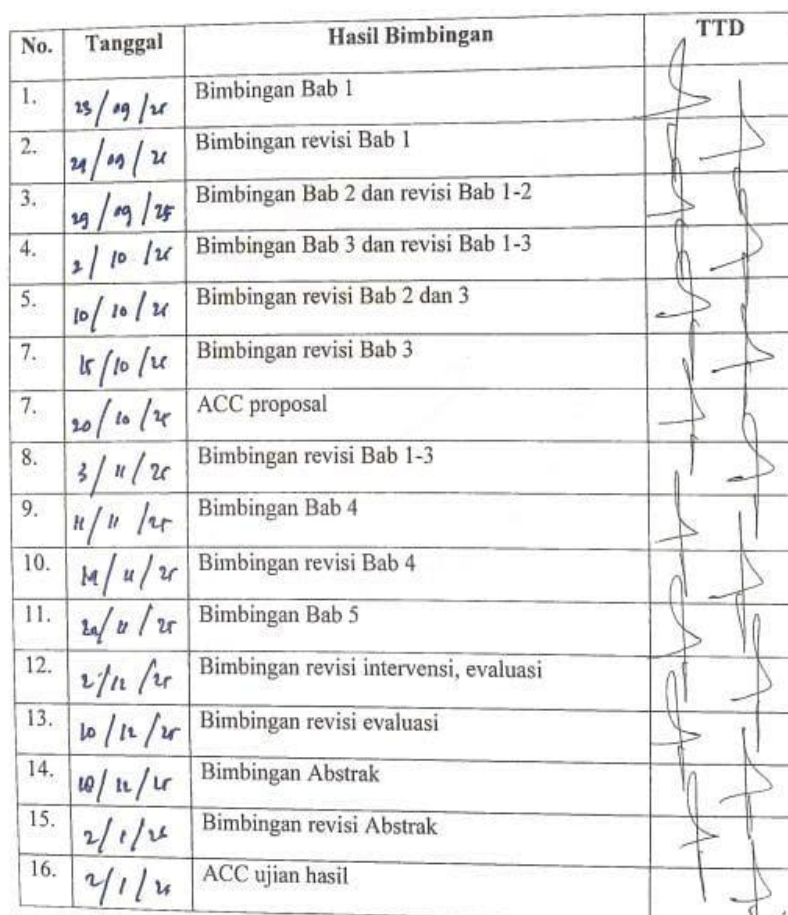 No. Tanggal Hasil Bimbingan TTD
1. 23/09/25 Bimbingan Bab 1
2. 24/09/25 Bimbingan revisi Bab 1
3. 29/09/25 Bimbingan Bab 2 dan revisi Bab 1-2
4. 2/10/25 Bimbingan Bab 3 dan revisi Bab 1-3
5. 10/10/25 Bimbingan revisi Bab 2 dan 3
7. 15/10/25 Bimbingan revisi Bab 3
7. 20/10/25 ACC proposal
8. 3/11/25 Bimbingan revisi Bab 1-3
9. 11/11/25 Bimbingan Bab 4
10. Bimbingan revisi Bab 4
11. Bimbingan Bab 5
12. 2/12/25 Bimbingan revisi intervensi, evaluasi
13. 10/12/25 Bimbingan revisi evaluasi
14. Bimbingan Abstrak
15. 2/1/26 Bimbingan revisi Abstrak
16. 2/1/26 ACC ujian hasil